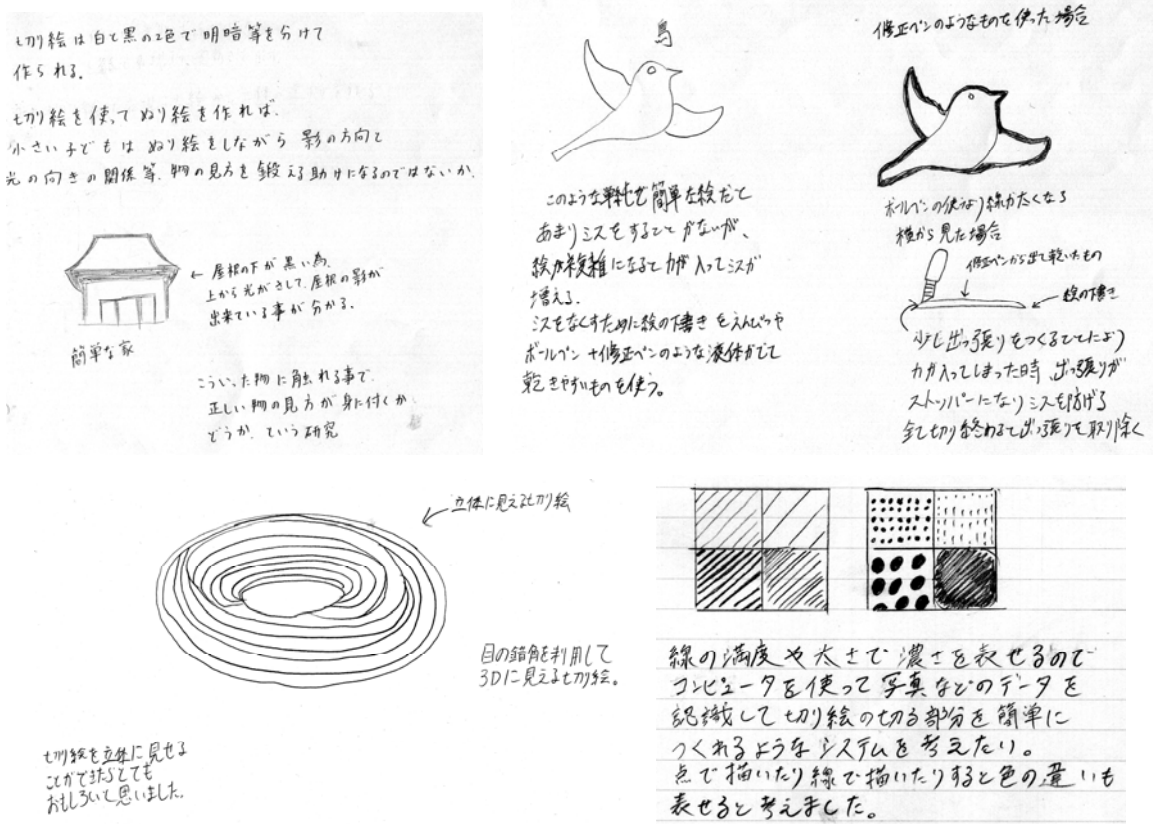 切り絵は白と黒の2色で明暗等を分けて
作られる。
切り絵を使ってぬり絵を作れば、
小さい子どもはぬり絵をしながら影の方向と
光の向きの関係等、物の見方を鍛える助けになるのではないか。
← 屋根の下が黒い為、
上から光がさして、屋根の影が
出来ている事が分かる。
簡単な家
こういった物に触れる事で、
正しい物の見方が身に付くか
どうか、という研究
鳥
このような単純で簡単な絵だと
あまりミスをすることがないが、
絵が複雑になると力が入ってミスが
増える。
ミスをなくすために絵の下書きをえんぴつや
ボールペン+修正ペンのような液体がでて
乾きやすいものを使う。
修正ペンのようなものを使った場合
ボールペンの使うより線が太くなる
横から見た場合
修正ペンから出て乾いたもの
← 絵の下書き
少し出っ張りをつくることにより
力が入ってしまった時、出っ張りが
ストッパーになりミスを防げる
全て切り終わると出っ張りを取り除く
立体に見える切り絵
目の錯角を利用して
3Dに見える切り絵。
切り絵を立体に見せる
ことができたらとても
おもしろいと思いました。
線の満度や太さで濃さを表せるので
コンピュータを使って写真などのデータを
認識して切り絵の切る部分を簡単に
つくれるようなシステムを考えたい。
点で描いたり線で描いたりすると色の違いも
表せると考えました。